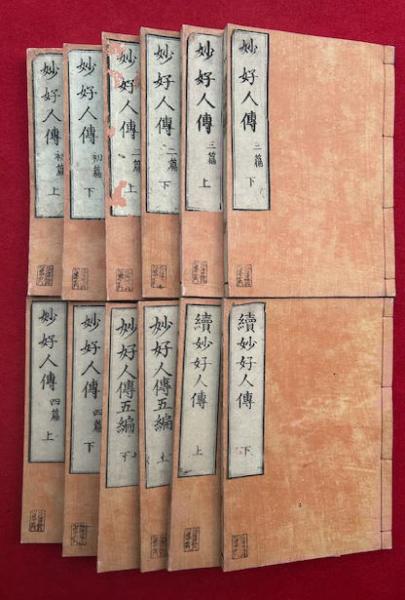 妙好人傳 初篇 上
妙好人傳 初篇 下
妙好人傳 二篇 上
妙好人傳 二篇 下
妙好人傳 三篇 上
妙好人傳 三篇 下
妙好人傳 四篇 上
妙好人傳 四篇 下
妙好人傳五編 下
妙好人傳五編 上
續妙好人傳 上
續妙好人傳 下